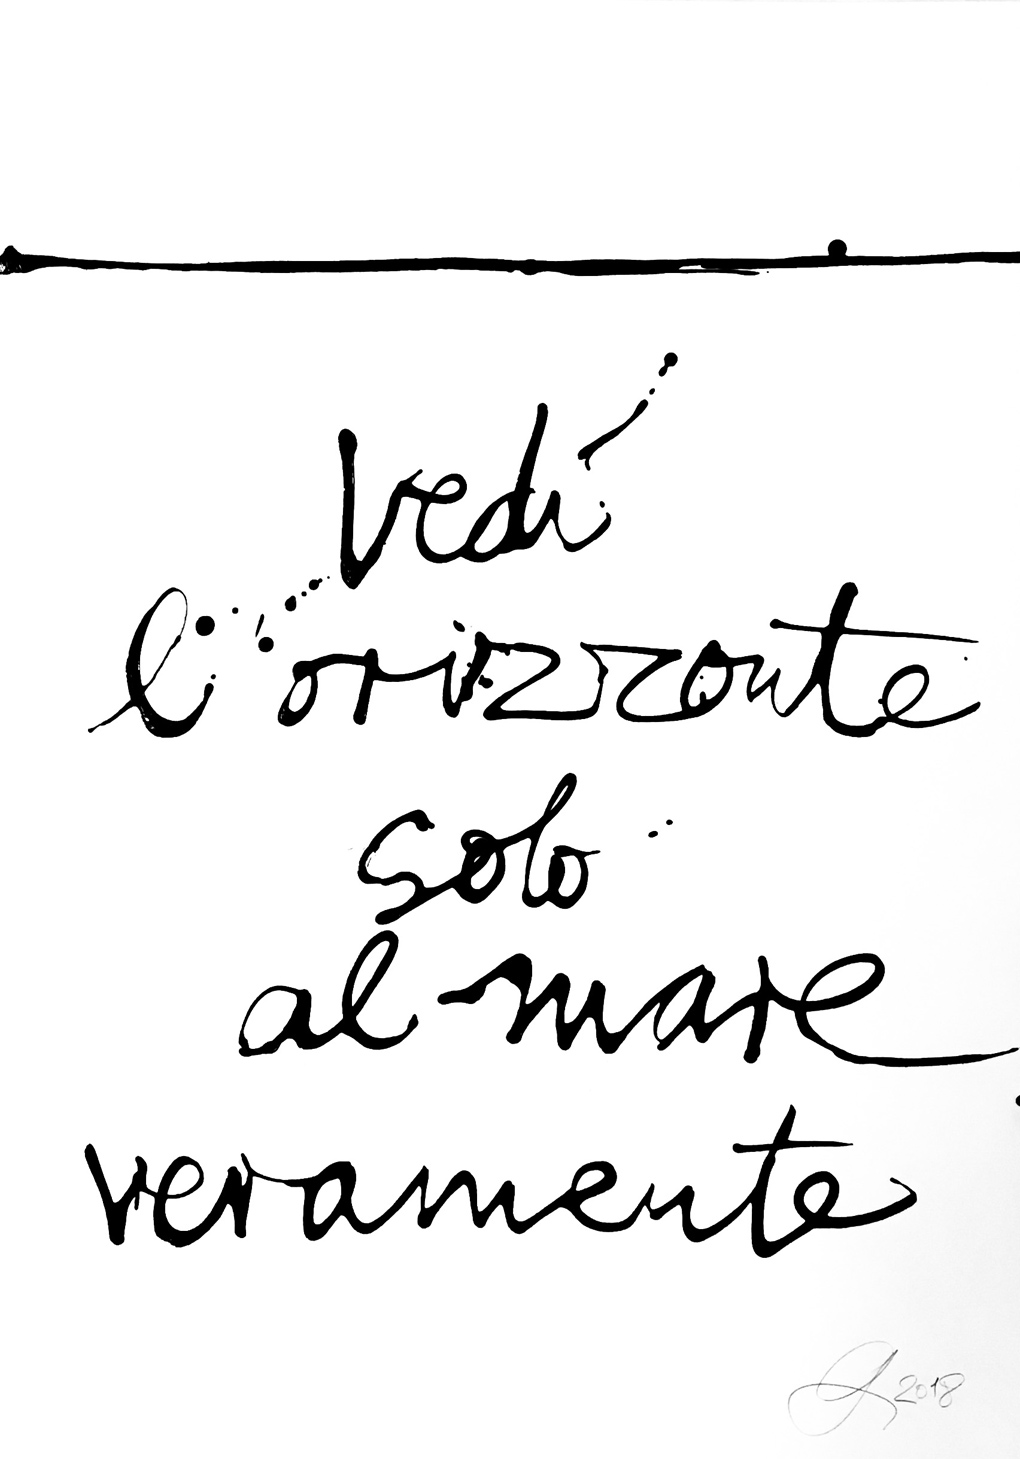 vedi
l'orizzonte
solo
al mare
veramente
2018